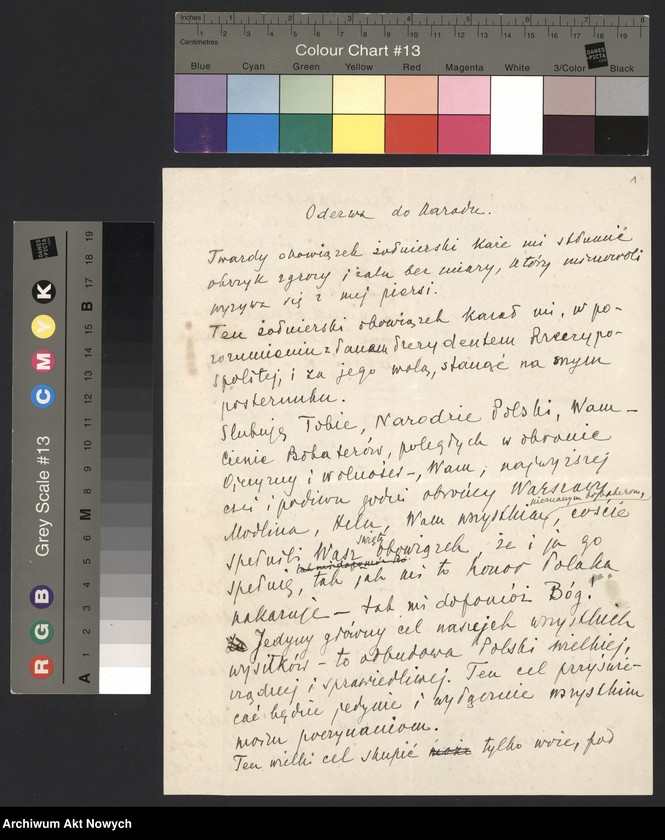 Inches 1 2 3 4 5 6 7 8
Centimetres 1 2 3 4 5 6 7 8 9 10 11 12 13 14 15 16 17 18 19
Colour Chart #13
DANES -PICTA .COM
Blue Cyan Green Yellow Red Magenta White 3/Color Black
Grey Scale #13
DANES -PICTA .COM
R G B C M Y K
A 1 2 3 4 5 6 M 8 9 10 11 12 13 14 15 B 17 18 19
1
Odezwa do Narodu.
Twardy obowiązek żołnierski każe mi stłumić
okrzyk zgrozy i żalu bez miary, który mimowoli
wyrywa się z mej piersi.
Ten żołnierski obowiązek kazał mi, w po-
rozumieniu z Panem Prezydentem Rzeczypo-
spolitej, i za jego wolą, stanąć na mym
posterunku.
Ślubuję Tobie, Narodzie Polski, Wam –
Cienie Bohaterów, poległych w obronie
Ojczyzny i wolności –, Wam, najwyższej
czci i podziwu godni obrońcy Warszawy,
Modlina, Helu, Wam wszystkim, nieznanym bohaterom, coście
spełnili Wasz święty obowiązek, że i ja go
spełnię, tak jak mi to honor Polaka
nakazuje – tak mi dopomóż Bóg!
Jedyny główny cel naszych wszystkich
wysiłków – to odbudowa Polski wielkiej,
rządnej i sprawiedliwej. Ten cel przyświe-
cać będzie jedynie i wyłącznie wszystkim
moim poczynaniom.
Ten wielki cel skupić może tylko woję, pod
Archiwum Akt Nowych